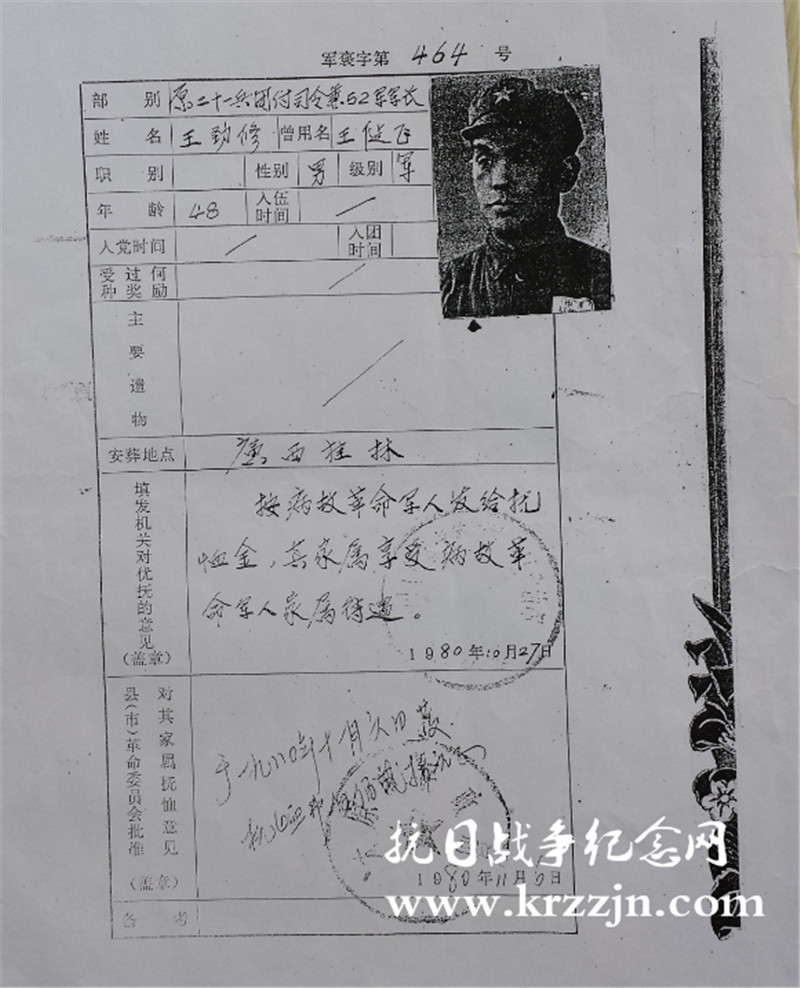 军褒字第 464 号
部别 原二十一兵团付司令兼52军军长
姓名 王劲修 曾用名 王健飞
职别 性别 男 级别 军
年龄 48 入伍时间 /
入党时间 / 入团时间
受过何种奖励 /
主要遗物 /
安葬地点 广西桂林
填发机关对优抚的意见(盖章)
按病故革命军人发给抚
恤金，其家属享受病故革
命军人家属待遇。
1980年10月27日
县(市)革命委员会批准对其家属抚恤意见(盖章)
于一九八〇年十月
1980年11月6日
备考
抗日战争纪念网
www.krzzjn.com